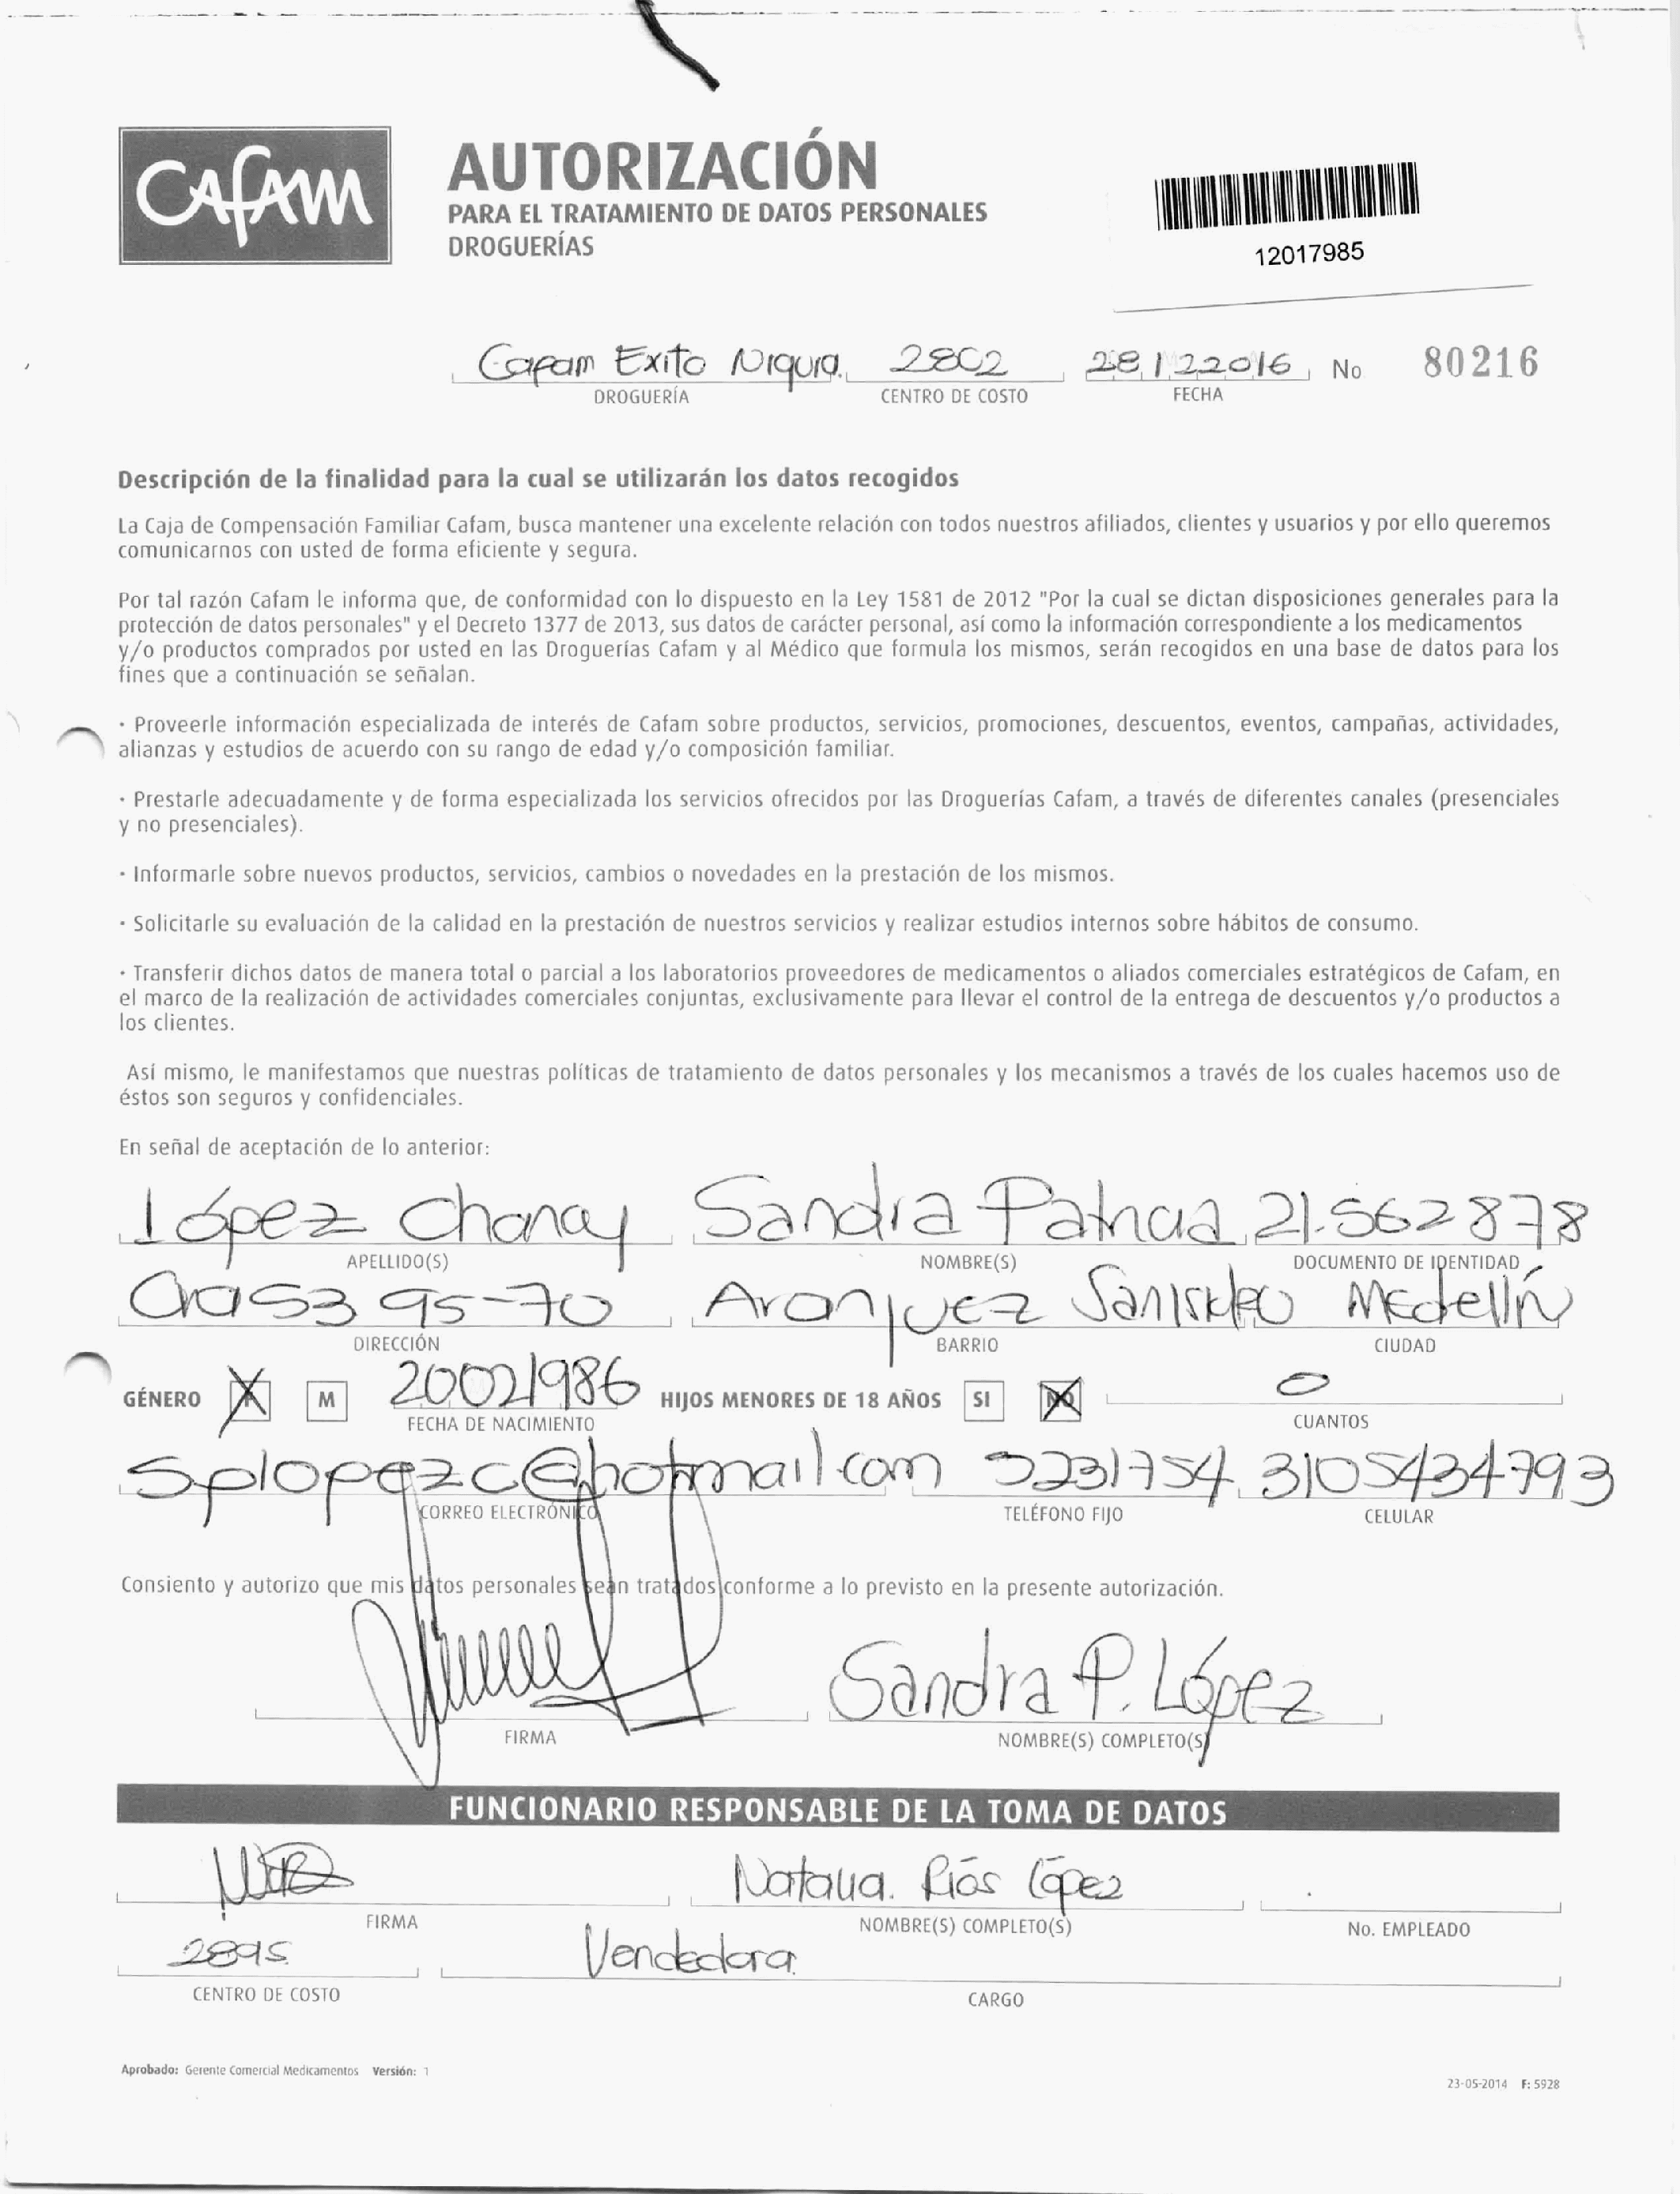 CAFAM
AUTORIZACIÓN
PARA EL TRATAMIENTO DE DATOS PERSONALES
DROGUERÍAS
12017985
Cafam Exito Niquia. 2802 28122016 No 80216
DROGUERÍA CENTRO DE COSTO FECHA
Descripción de la finalidad para la cual se utilizarán los datos recogidos
La Caja de Compensación Familiar Cafam, busca mantener una excelente relación con todos nuestros afiliados, clientes y usuarios y por ello queremos
comunicarnos con usted de forma eficiente y segura.
Por tal razón Cafam le informa que, de conformidad con lo dispuesto en la Ley 1581 de 2012 "Por la cual se dictan disposiciones generales para la
protección de datos personales" y el Decreto 1377 de 2013, sus datos de carácter personal, así como la información correspondiente a los medicamentos
y/o productos comprados por usted en las Droguerías Cafam y al Médico que formula los mismos, serán recogidos en una base de datos para los
fines que a continuación se señalan.
· Proveerle información especializada de interés de Cafam sobre productos, servicios, promociones, descuentos, eventos, campañas, actividades,
alianzas y estudios de acuerdo con su rango de edad y/o composición familiar.
· Prestarle adecuadamente y de forma especializada los servicios ofrecidos por las Droguerías Cafam, a través de diferentes canales (presenciales
y no presenciales).
· Informarle sobre nuevos productos, servicios, cambios o novedades en la prestación de los mismos.
· Solicitarle su evaluación de la calidad en la prestación de nuestros servicios y realizar estudios internos sobre hábitos de consumo.
· Transferir dichos datos de manera total o parcial a los laboratorios proveedores de medicamentos o aliados comerciales estratégicos de Cafam, en
el marco de la realización de actividades comerciales conjuntas, exclusivamente para llevar el control de la entrega de descuentos y/o productos a
los clientes.
Así mismo, le manifestamos que nuestras políticas de tratamiento de datos personales y los mecanismos a través de los cuales hacemos uso de
éstos son seguros y confidenciales.
En señal de aceptación de lo anterior:
López Sandra Patricia 21.562878
APELLIDO(S) NOMBRE(S) DOCUMENTO DE IDENTIDAD
Cra53 95-70 Aranjuez Medellín
DIRECCIÓN BARRIO CIUDAD
GÉNERO M 20021986 HIJOS MENORES DE 18 AÑOS SI NO 0
FECHA DE NACIMIENTO CUANTOS
splopezc@hotmail.com 5231754 3105434793
CORREO ELECTRÓNICO TELÉFONO FIJO CELULAR
Consiento y autorizo que mis datos personales sean tratados conforme a lo previsto en la presente autorización.
Sandra P. López
FIRMA NOMBRE(S) COMPLETO(S)
FUNCIONARIO RESPONSABLE DE LA TOMA DE DATOS
Natalia. Ríos López
FIRMA NOMBRE(S) COMPLETO(S) No. EMPLEADO
2895 Vendedora.
CENTRO DE COSTO CARGO
Aprobado: Gerente Comercial Medicamentos Versión: 1
23-05-2014 F: 5928